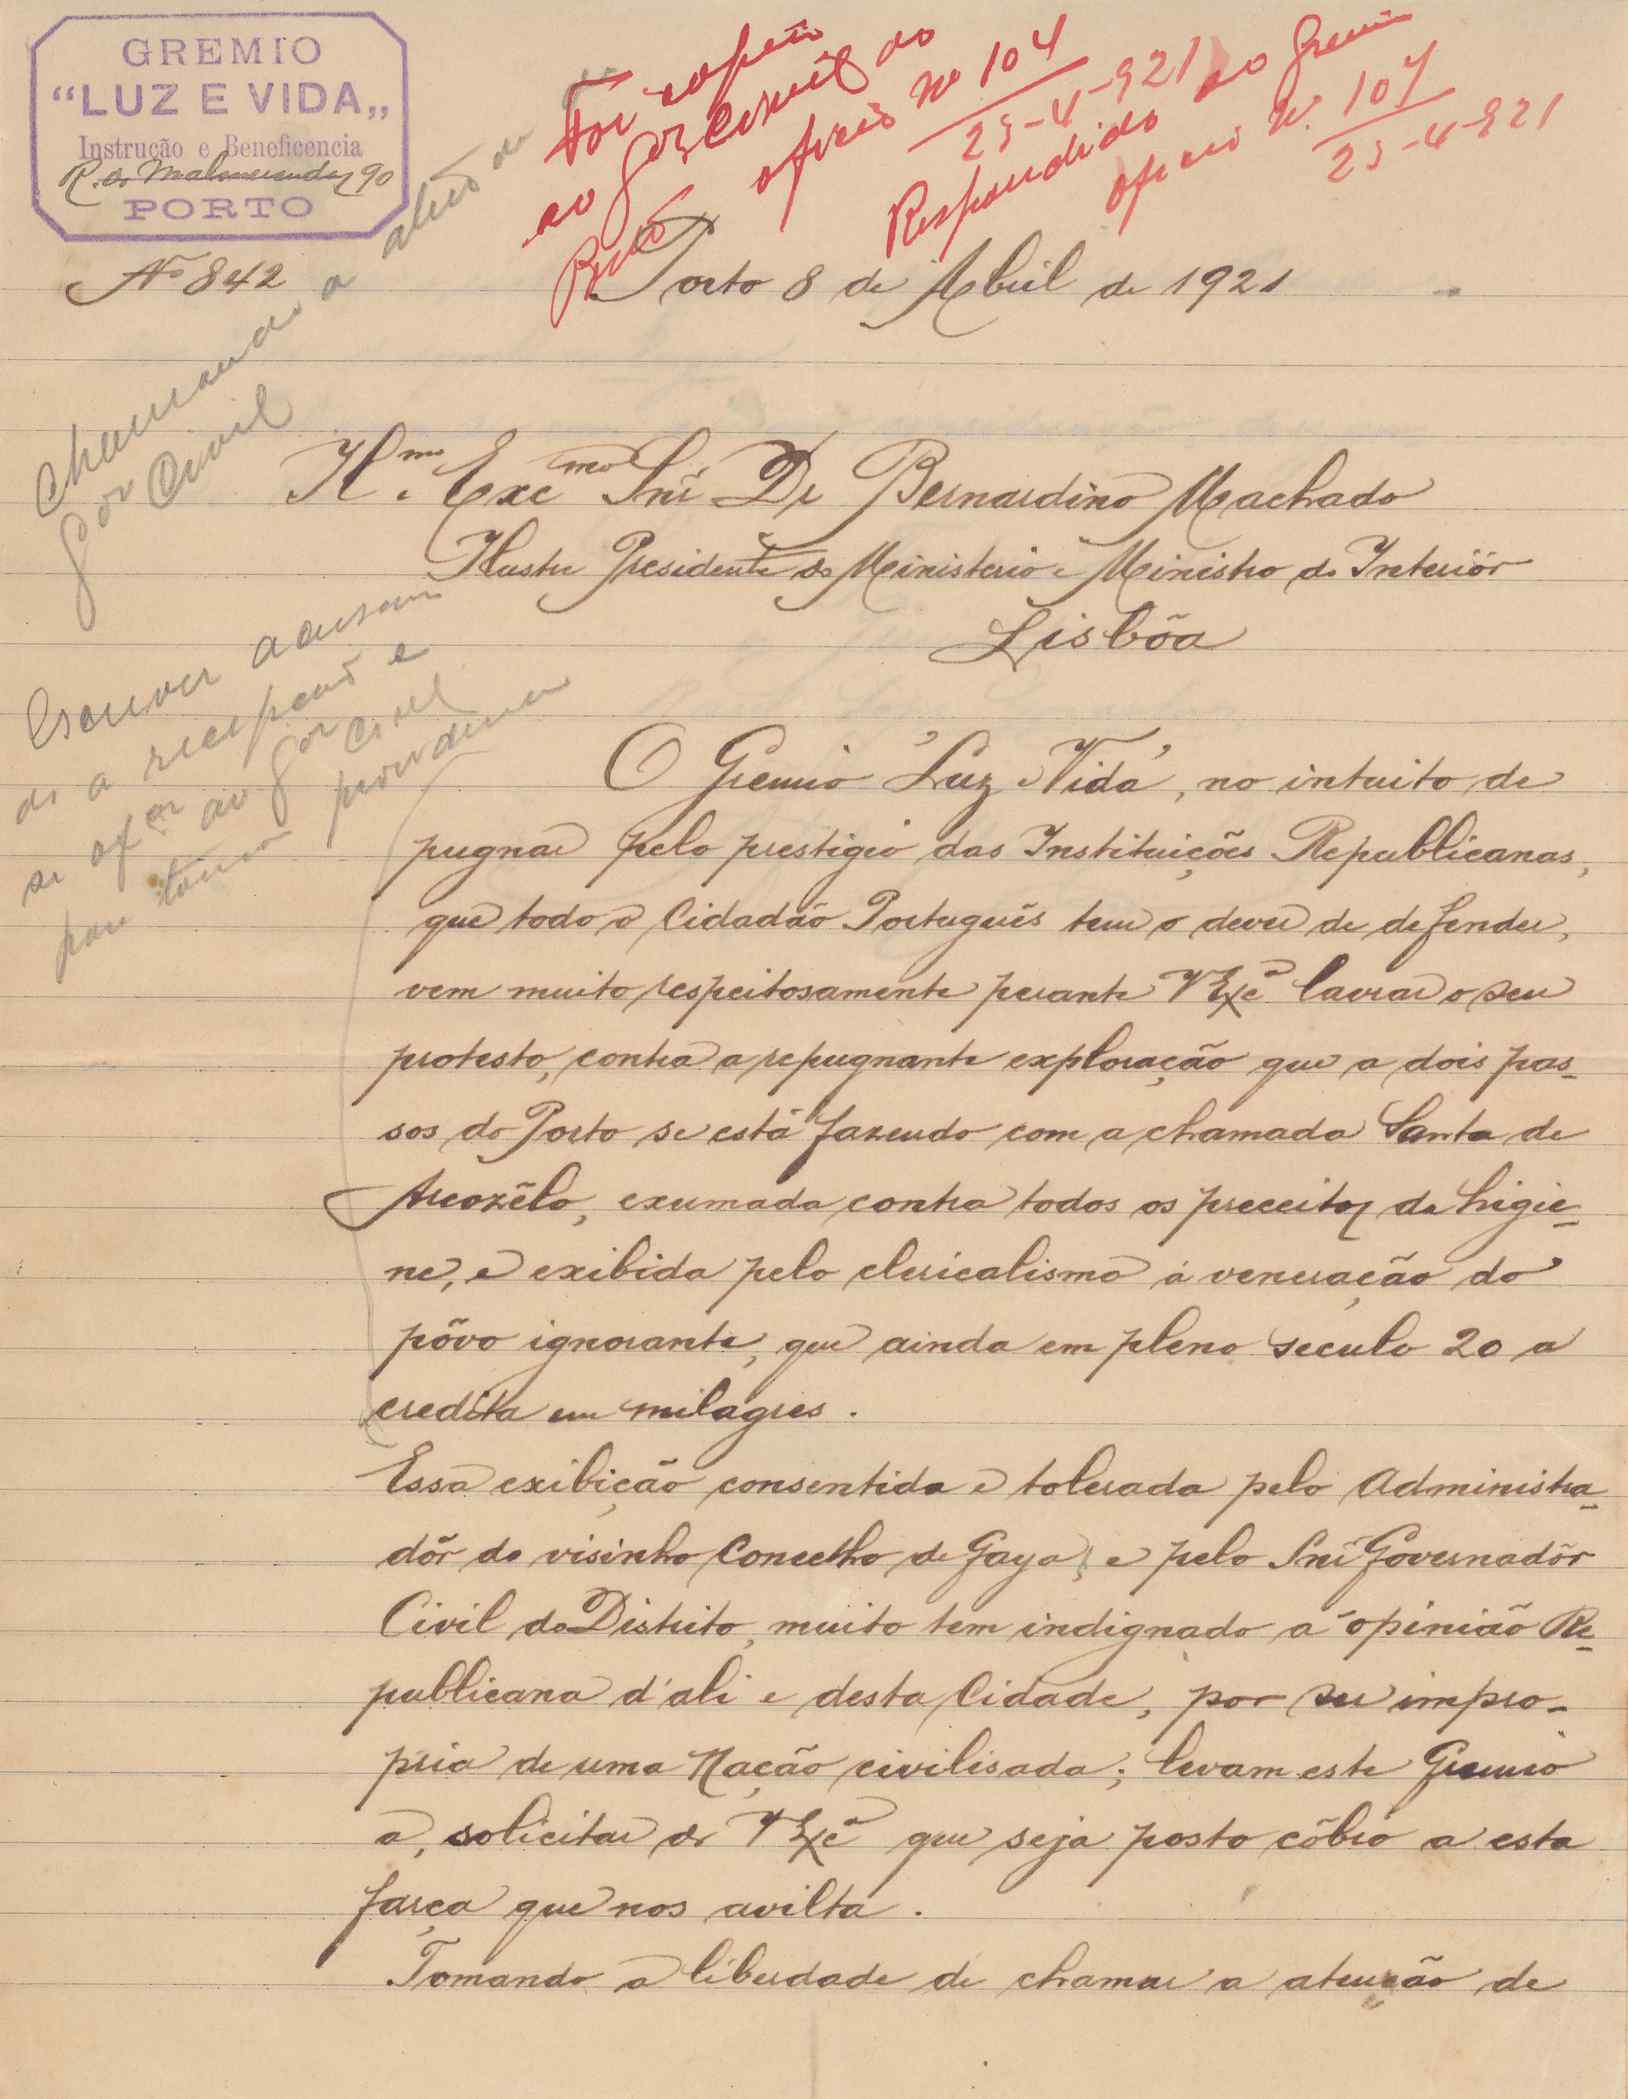 GREMIO
"LUZ E VIDA"
Instrução e Beneficencia
90
PORTO
Nº 842
Foi copeia
ao Gov Civil do
Porto oficio Nº 104
25-4-921
Respondido ao Gremio
oficio Nº 107
25-4-921
Porto 8 de Abril de 1921
Chamando a atenção do
Gov Civil
Il.mo Exc.mo Snr Dr Bernardino Machado
Ilustre Presidente do Ministerio e Ministro do Interiôr
Lisbôa
Escrever acusan
do a recepção e
se of ao Gov Civil
para tomar providencia
O Gremio "Luz e Vida", no intuito de
pugnar pelo prestigio das Instituições Republicanas,
que todo o Cidadão Português tem o dever de defender,
vem muito respeitosamente perante V Exc.ª lavrar o seu
protesto, contra a repugnante exploração que a dois pas-
sos do Porto se está fazendo com a chamada Santa de
Arcozêlo, exumada contra todos os preceitos da higie-
ne, e exibida pelo clericalismo á veneração do
pôvo ignorante, que ainda em pleno seculo 20 a
credita em milagres.
Essa exibição consentida e tolerada pelo Administra-
dôr do visinho Concelho de Gaya, e pelo Snr Governadôr
Civil do Distrito, muito tem indignado a opinião Re-
publicana d'ali e desta Cidade, por ser impro-
pria de uma Nação civilisada; levam este Gremio
a, solicitar de V Exc.ª que seja posto côbro a esta
farça que nos avilta.
Tomando a liberdade de chamar a atenção de